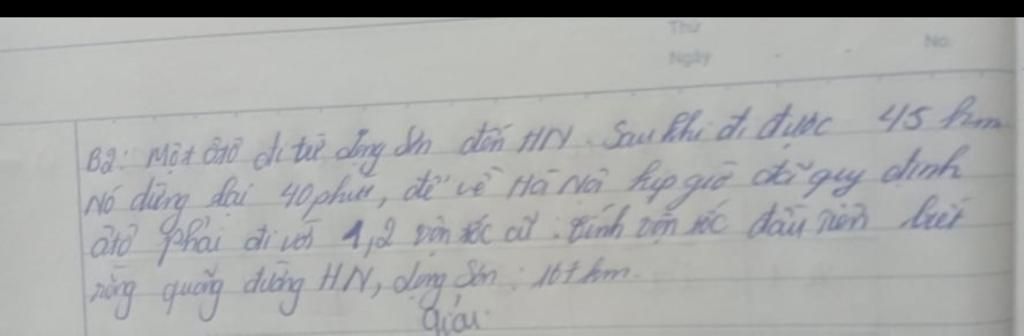 Thứ
Ngày
No.
B2: Một ôtô đi từ Lạng Sơn đến HN. Sau khi đi được 45 km
Nó dừng lại 40 phút, để về Hà Nội kịp giờ đã quy định
ôtô phải đi với 1,2 vận tốc cũ. Tính vận tốc đầu tiên biết
rằng quãng đường HN, Lạng Sơn: km.
Giải